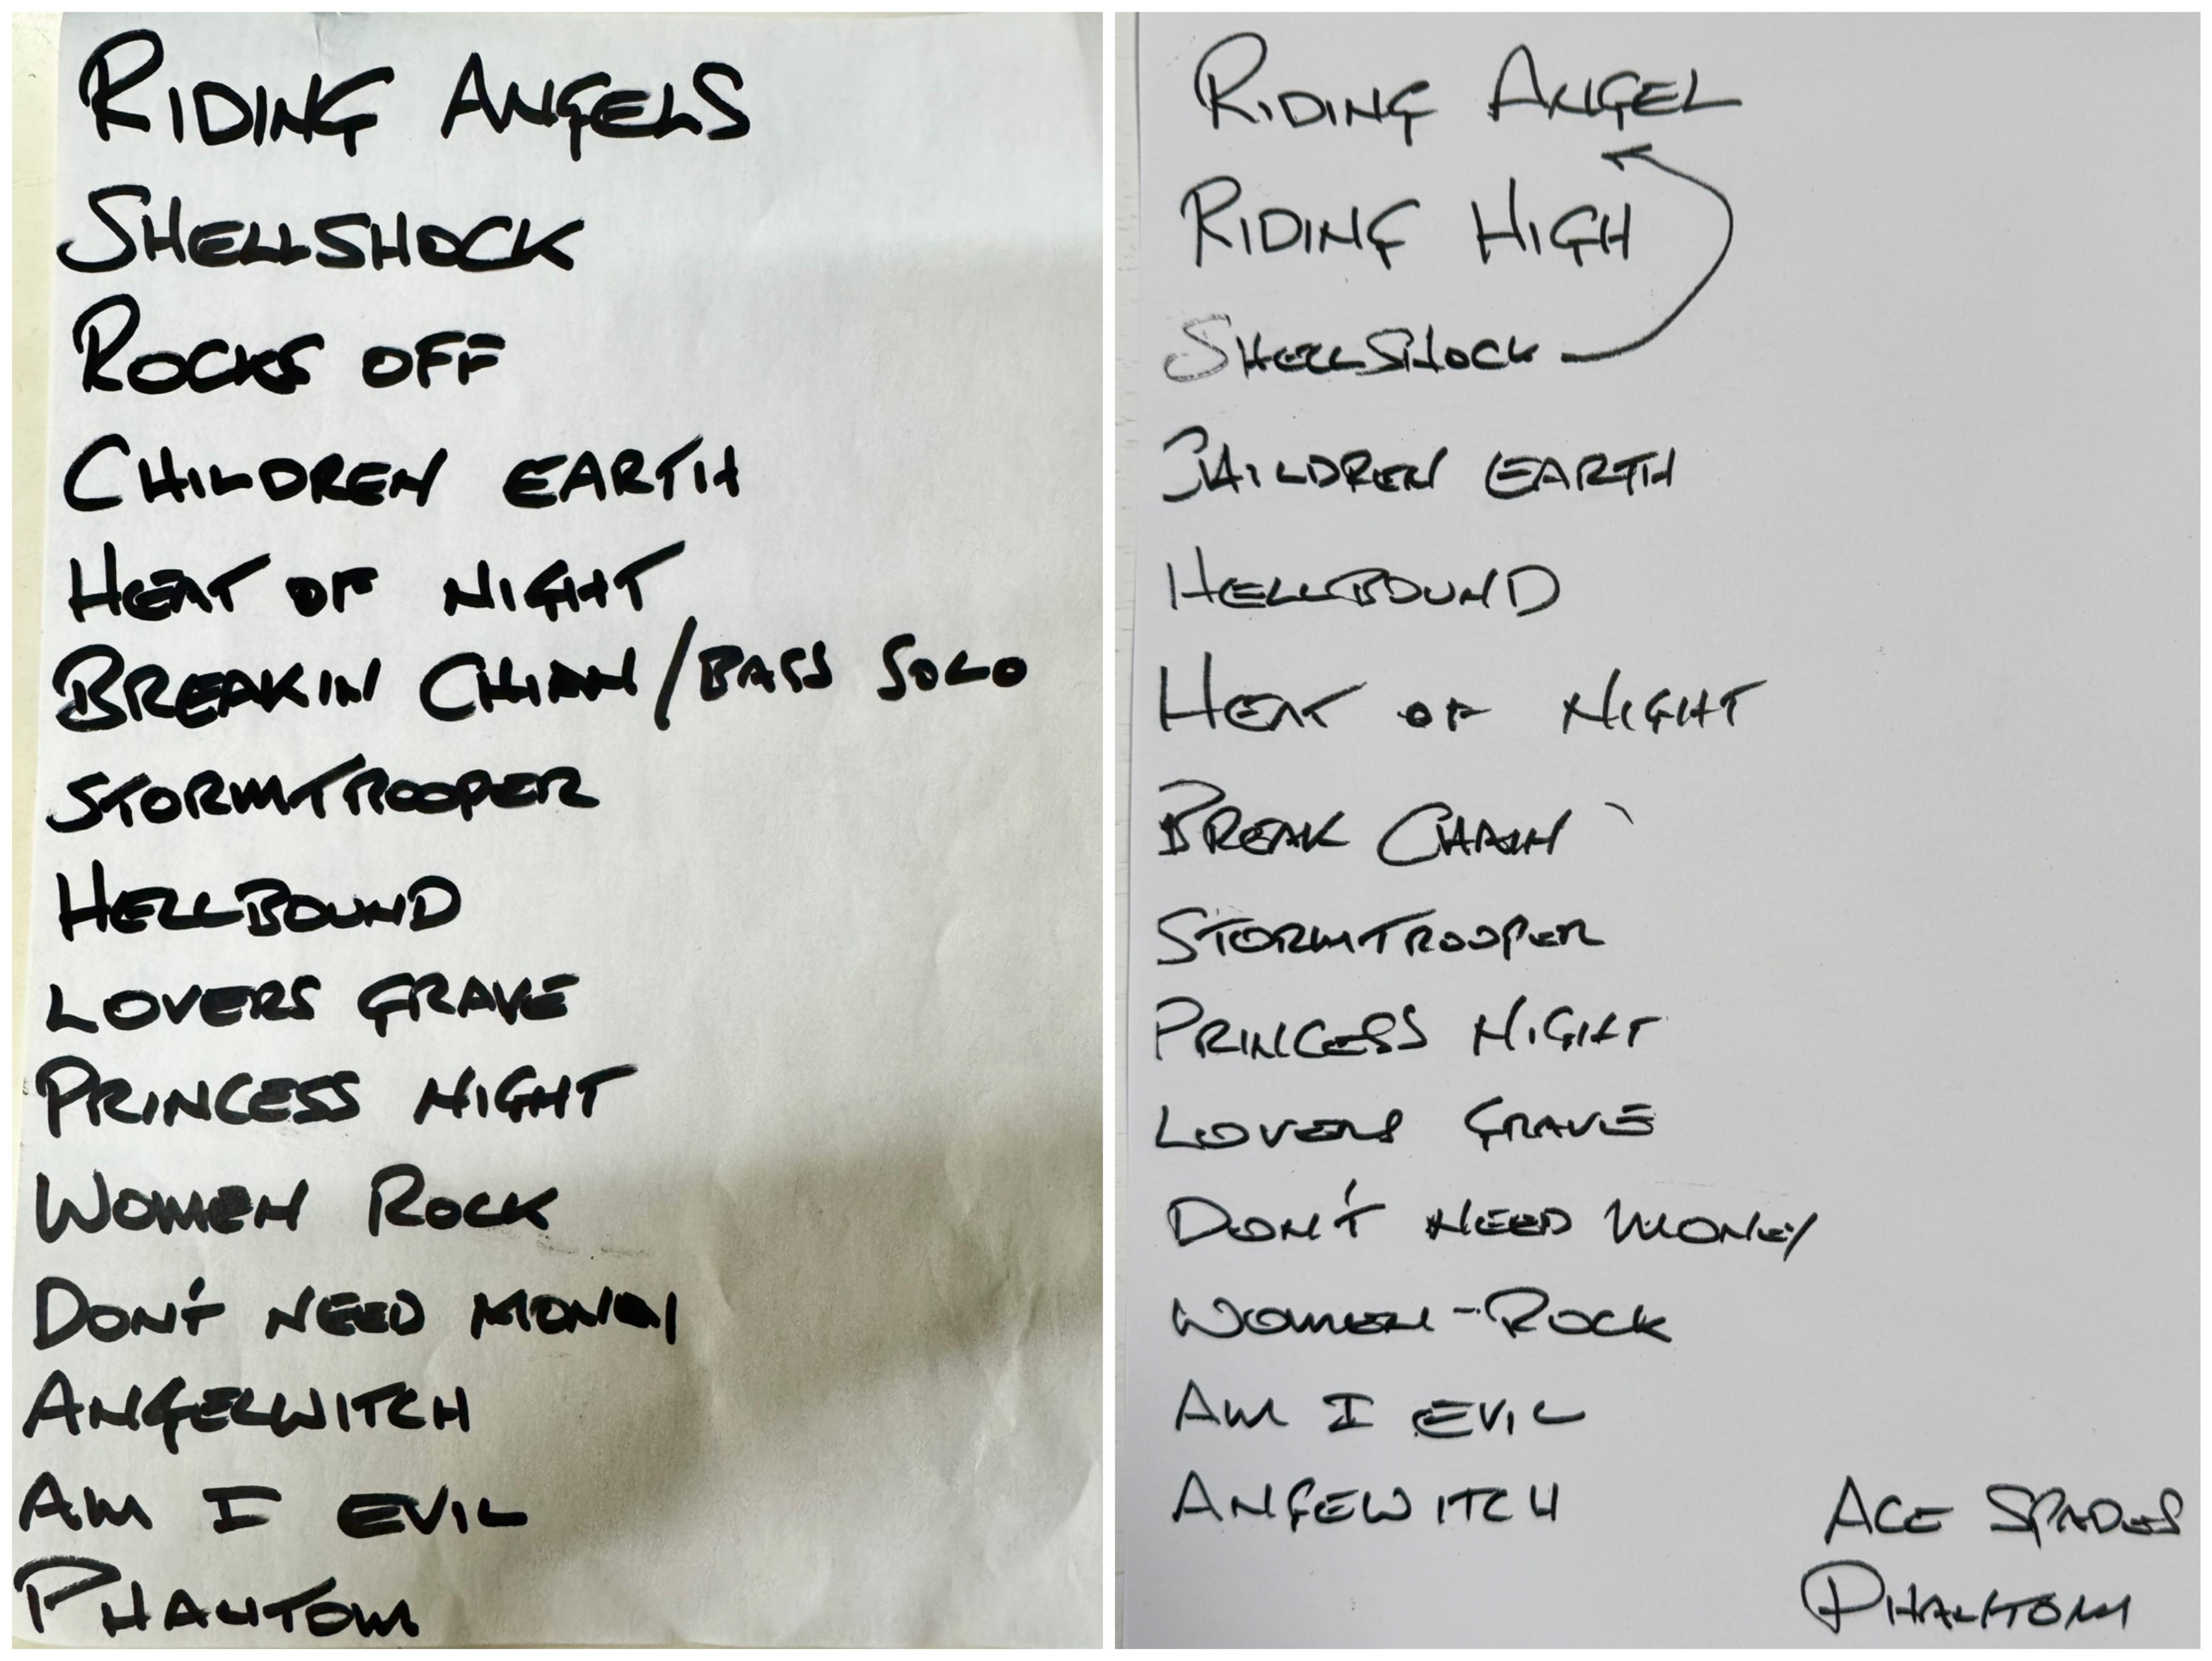 RIDING ANGELS
SHELLSHOCK
ROCKS OFF
CHILDREN EARTH
HEAT OF NIGHT
BREAKIN CHIAN/BASS SOLO
STORMTROOPER
HELLBOUND
LOVERS GRAVE
PRINCESS NIGHT
WOMEN ROCK
DON'T NEED MONEY
ANGELWITCH
AM I EVIL
PHANTOM
RIDING ANGEL
RIDING HIGH
SHELLSHOCK
CHILDREN EARTH
HELLBOUND
HEAT OF NIGHT
BREAK CHAIN
STORMTROOPER
PRINCESS NIGHT
LOVERS GRAVE
DON'T NEED MONEY
WOMEN-ROCK
AM I EVIL
ANGEWITCH
ACE SPADES
PHANTOM